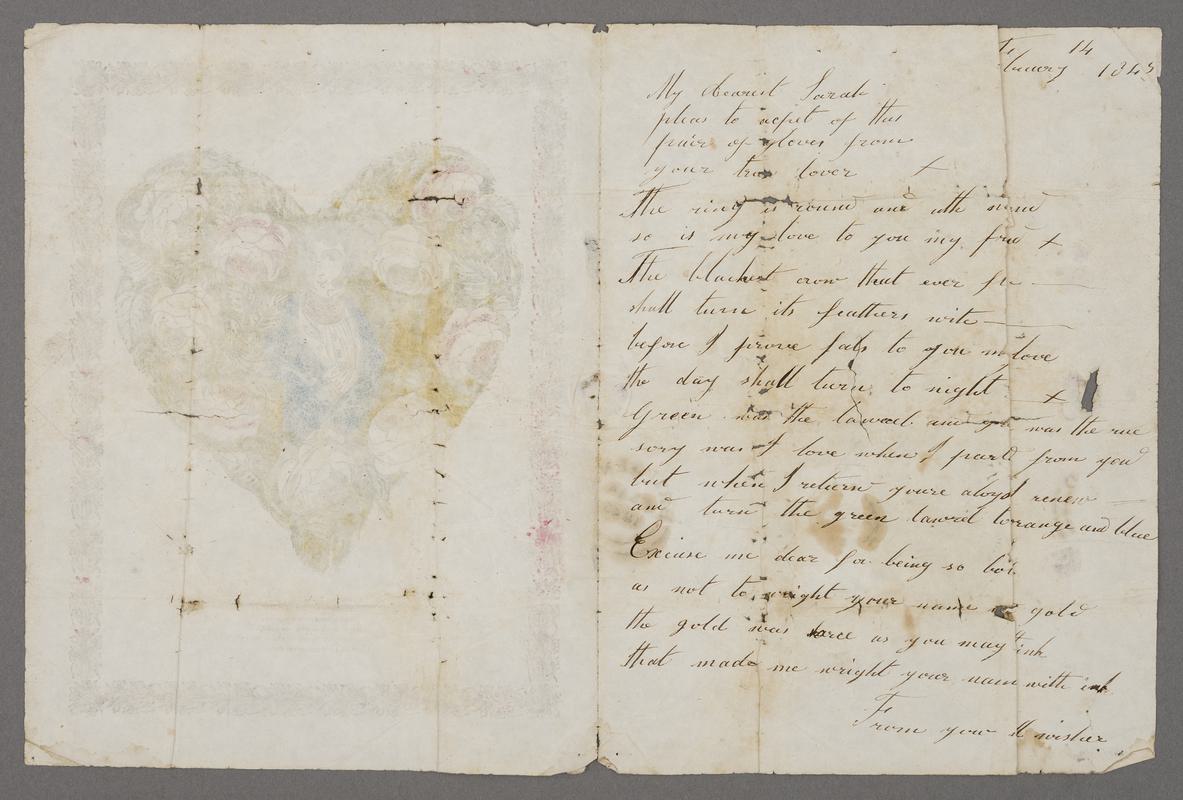 14
bruary 1845
My dearest Sarah
pleas to acpet of this
pair of gloves from
your true lover x
The ring is round and
so is my love to you my x
The blackest crow that ever
shall turn its feathers
before I prove to you my love
the day shall turn to night x
Green was the lawrel and was the rue
sory was I love when I part from you
but when I return youre renew
and turn the green lawrel to orange and blue
Excuse me dear for being so
as not to wright your name gold
the gold was as you may
that made me wright your nam with ink
From your wisher